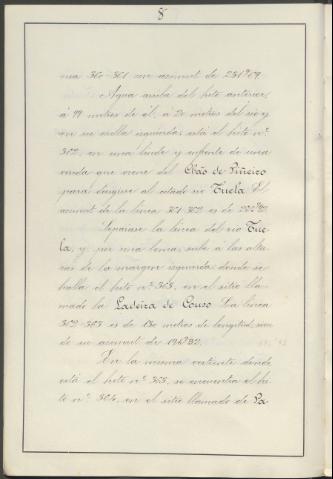 8
nea 360-361 un acimut de 231º 09'
Agua arriba del hito anterior,
á 99 metros de él, á 20 metros del rio y
en su orilla izquierda está el hito nº
362, en una linde y enfrente de una
vereda que viene del Chão de Piñeiro
para dirigirse al citado rio Tuela. El
acimut de la linea 361-362 es de
Sepárase la linea del rio Tue-
la, y, por una loma, sube á las altu-
ras de la margen izquierda donde se
halla el hito nº 363, en el sitio lla-
mado la Ladeira do Couso. La linea
362-363 es de 180 metros de longitud, sien-
do su acimut de
En la misma vertiente donde
está el hito nº 363, se encuentra el hi-
to nº 364, en el sitio llamado de Pa-